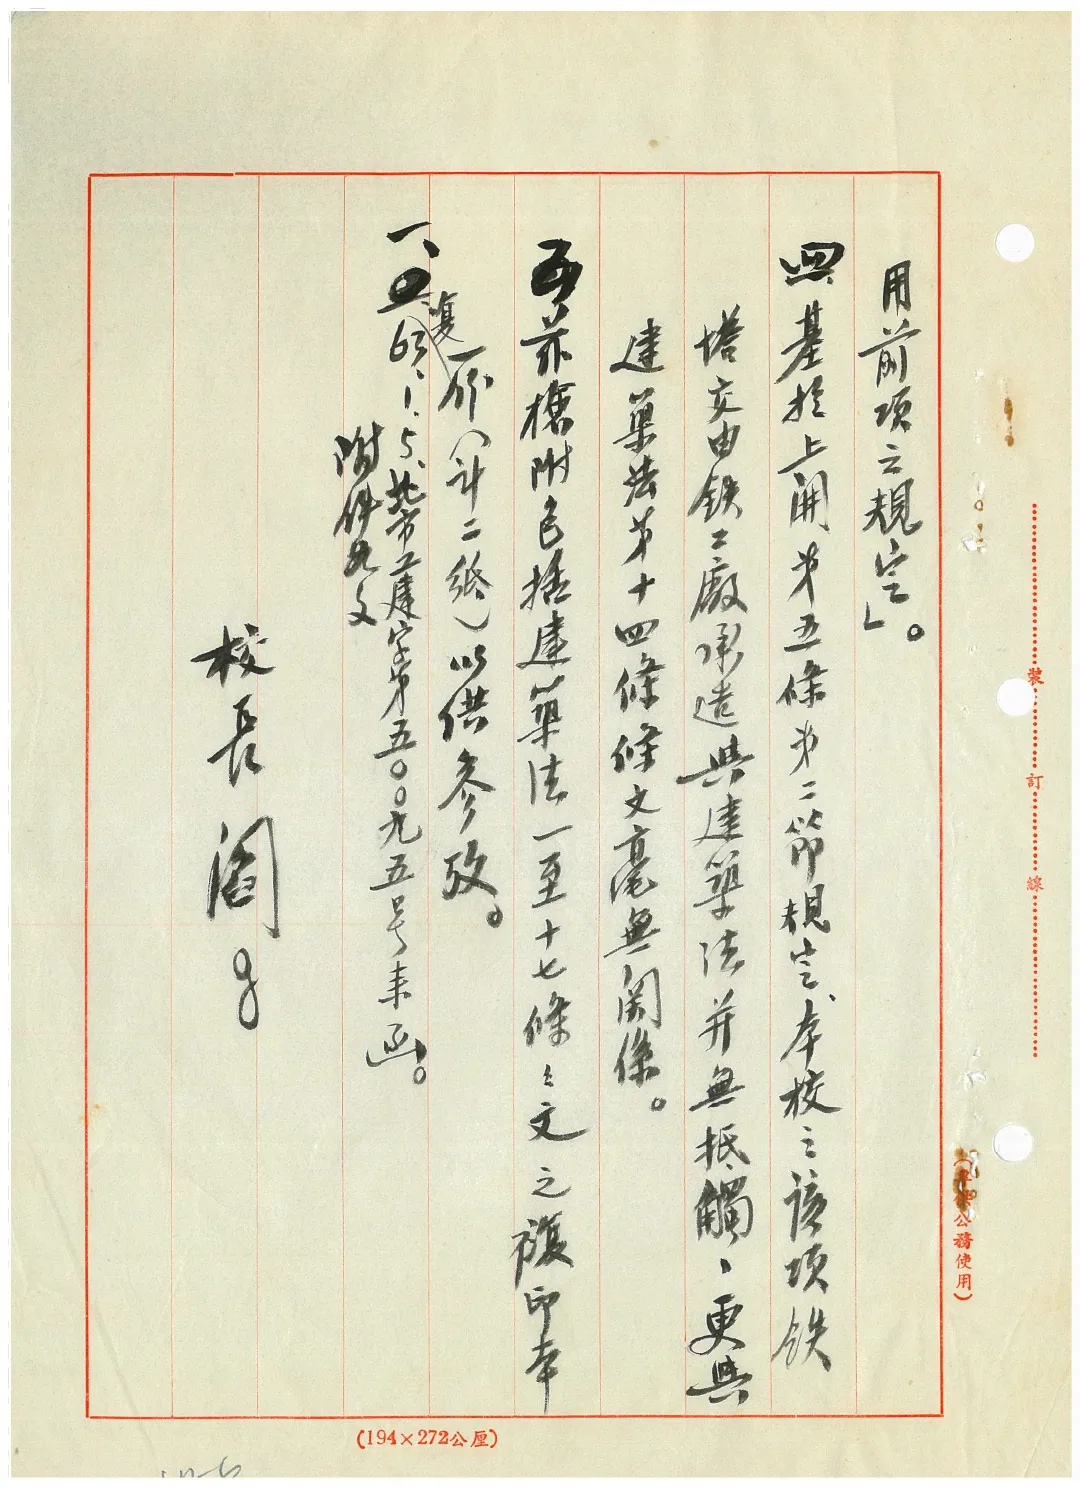 用前項之規定」。
四基於上開第五條第二節規定、本校之該項鉄
塔交由鉄工廠承造與建築法并無抵觸、更與
建築法第十四條條文毫無関係。
五茲檢附包括建築法一至十七條之文之複印本
一份(計二紙)以供參攷。
一、復63.1.5.北市工建字第五〇〇九五号來函。
附件如文
校長 閻
裝 訂 線
公務使用)
(194×272公厘)